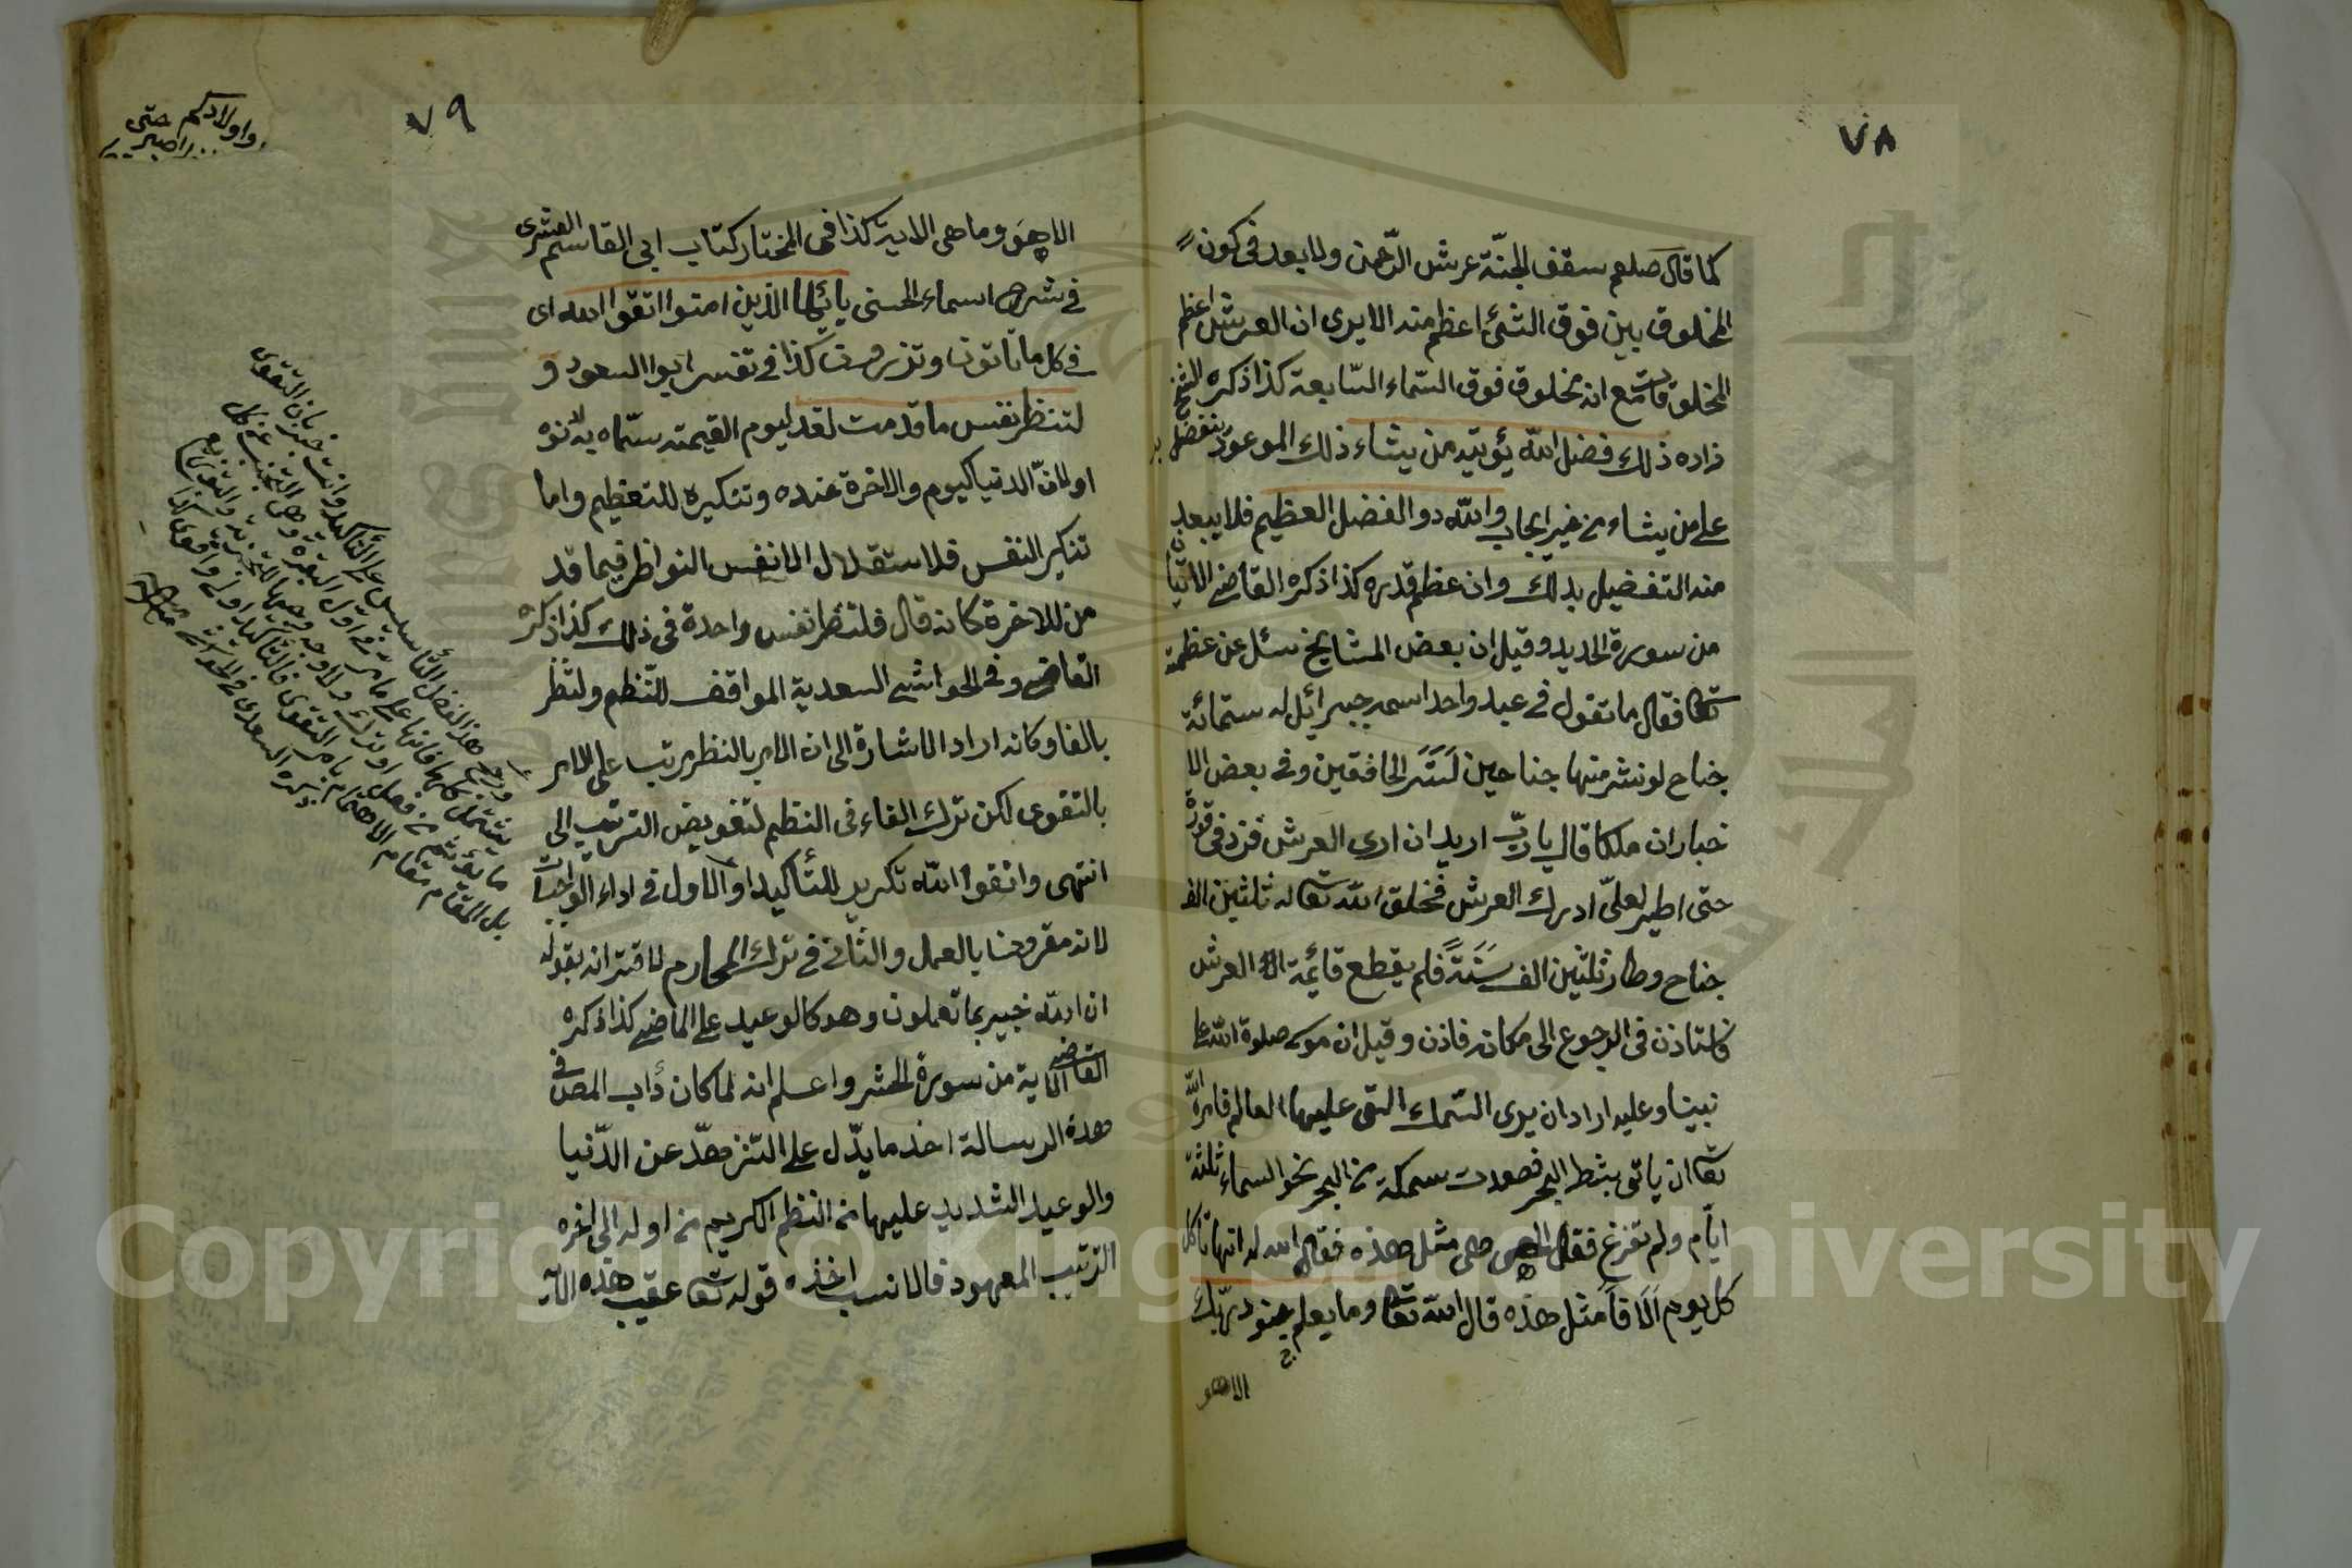 ٧٨
كما قال صلعم سقف الجنّة عرش الرّحمن ولا بعد في كون
المخلوق بين فوق الشئ اعظم منه الا يرى ان العرش اعظم
المخلوقات مع انه مخلوق فوق السّماء السّابعة كذا ذكره الشيخ
زاده ذلك فضل الله يؤتيه من يشاء ذلك الموعود يتفضل به
على من يشاء من غير ايجاب والله ذوا الفضل العظيم فلا يبعد
منه التفضيل بذلك وان عظم قدره كذا ذكره القاضى
من سورة الحديد وقيل ان بعض المشايخ سئل عن عظمة
تعا فقال ما تقول في عبد واحد اسمه جبرائل له ستمائة
جناح لو نشر منها جناحين لستر الخافقين وفي بعض الا
خبار ان ملكا قال يا ربّ اريد ان ارى العرش فزد في قوة
حتى اطير لعلّى ادرك العرش فخلق الله تعا له ثلثين الف
جناح وطار ثلثين الف سَنَةً فلم يقطع قائمة العرش
فاستاذن في الرجوع الى مكانه فاذن وقيل ان موسى صلوة الله على
نبينا وعليه اراد ان يرى السّمك التى عليها العالم فامره الله
تعا ان ياتى بشط البحر فصعدت سمكة من البحر نحو السماء ثلثة
ايّام ولم تفرغ فقال الهى هى مثل هذه فقال الله له انها تاكل
كل يوم آلافاً مثل هذه قال الله تعا وما يعلم جنود ربّك
الاهو
٧٩
الا هو وما هى الاية كذا في المختار كتاب ابى القاسم القشرى
في شرح اسماء الحسنى يا ئيها الذين امنوا اتقوا الله اى
في كل ما تاتون وتذرون كذا في تفسر ابوا السعود و
لتنظر نفس ما قدمت لغد ليوم القيمة سمّاه به لدنوه
او لانّ الدنيا كيوم والاخرة غده وتنكيره للتعظيم واما
تنكير النفس فلاستقلال الانفس النواظر فيما قد
من للاخرة كانه قال فلتنظر نفس واحدة في ذلك كذا ذكره
القاضى وفي الحواشى السعدية الموافق للنّظم ولتنظر
بالفا وكانه اراد الاشارة الى ان الامر بالنظر مرتب على الامر
بالتقوى لكن ترك الفاء في النظم لتفويض الترتيب الى
انتهى واتقوا الله تكرير للتأكيد او الاول في اداء الواجبات
لانه مقرون بالعمل والثانى في ترك المحارم لاقترانه بقوله
ان الله خبير بما تعملون وهو كالوعيد على الماضى كذا ذكره
القاضى الاية من سورة الحشر واعلم انه لما كان دأب المص في
هذه الرسالة اخذ ما يدّل على التنزهّد عن الدّنيا
والوعيد الشديد عليها من النظم الكريم من اوله الى اخره
الترتيب المعهود فالانسب اخذه قوله تعا عقيب هذه الآية
واولادكم حتى
ورجح هذا الفضل التأسيس على التأكيد وانت خبير بان التقوى